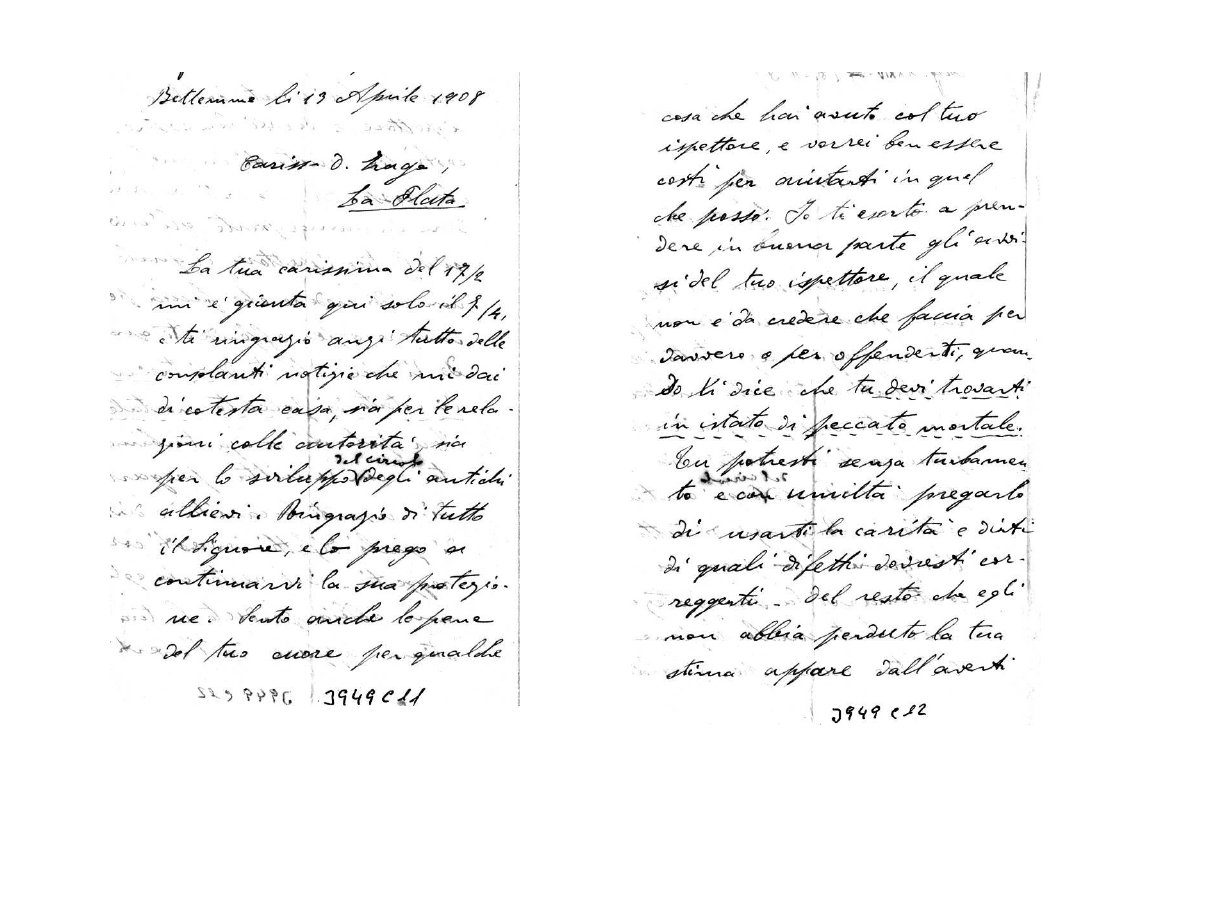 Betlemme li 13 Aprile 1908
Cariss. D.
La Plata
La tua carissima del 17/2
mi è giunta qui solo il 7/4,
e ti ringrazio anzi tutto delle
consolanti notizie che mi dai
di cotesta casa, sia per le rela-
zioni colle autorità sia
del circolo
per lo sviluppo degli antichi
allievi. Ringrazio di tutto
il Signore, e lo prego a
continuarvi la sua protezio-
ne. Sento anche le pene
del tuo cuore per qualche
3949 C 11
cosa che hai avuto col tuo
ispettore, e vorrei ben essere
costì per aiutarti in quel
che posso. Io ti esorto a pren-
dere in buona parte gli avvi-
si del tuo ispettore, il quale
non è da credere che faccia per
davvero o per offenderti, quan-
do ti dice che tu devi trovarti
in istato di peccato mortale.
Tu potresti senza turbamen
to e con umiltà pregarlo
di usarti la carità e dirti
di quali difetti dovresti cor-
reggerti. Del resto che egli
non abbia perduto la tua
stima appare dall'averti
3949 C 12